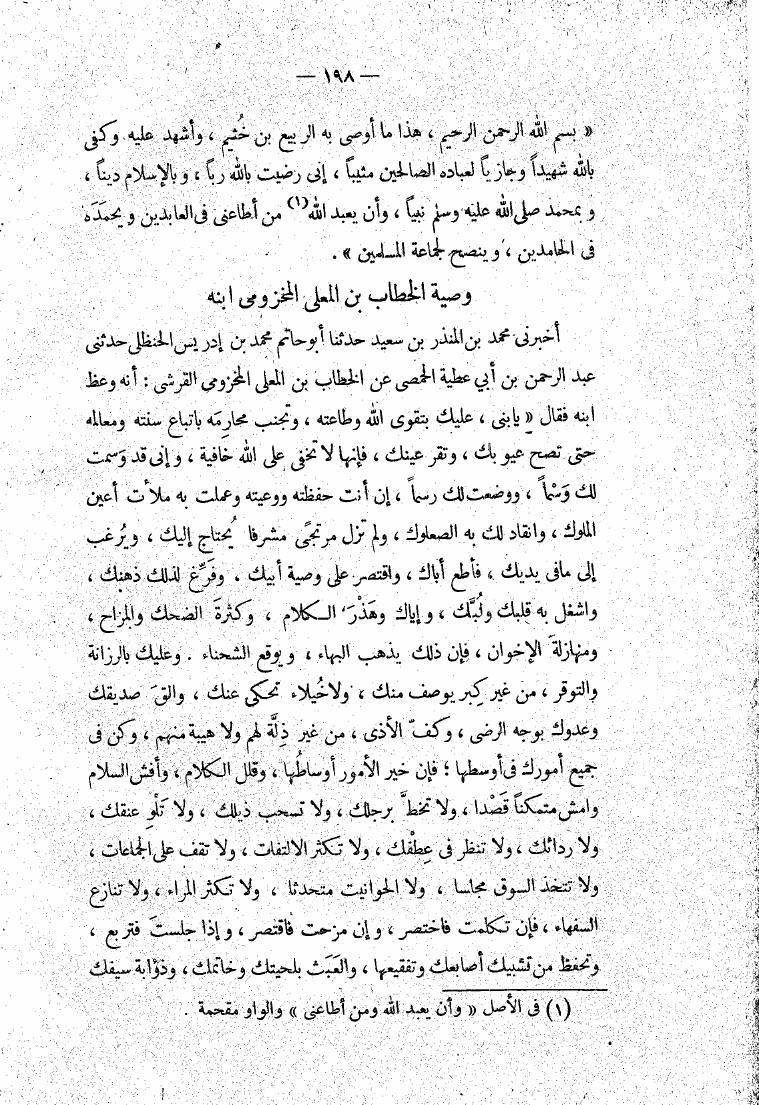 — ١٩٨ —
« بسم الله الرحمن الرحيم ، هذا ما أوصى به الربيع بن خُثيم ، وأشهد عليه وكفى
بالله شهيداً وجازياً لعباده الصالحين مثيباً ، إنى رضيت بالله رباً ، وبالإسلام ديناً ،
وبمحمد صلى الله عليه وسلم نبياً ، وأن يعبد الله(١) من أطاعنى فى العابدين ويحمَدَه
فى الحامدين ، وينصح لجماعة المسلمين » .
وصية الخطاب بن المعلى المخزومى ابنه
أخبرنى محمد بن المنذر بن سعيد حدثنا أبو حاتم محمد بن إدريس الحنظلى حدثنى
عبد الرحمن بن أبي عطية الحمصى عن الخطاب بن المعلى المخزومى القرشى : أنه وعظ
ابنه فقال « يابنى ، عليك بتقوى الله وطاعته ، وتجنب محارمَه باتباع سنته ومعالمه
حتى تصح عيوبك ، وتقر عينك ، فإنها لا تخفى على الله خافية ، وإنى قد وَسمت
لك وَسْماً ، ووضعت لك رسماً ، إن أنت حفظته ووعيته وعملت به ملأت أعين
الملوك ، وانقاد لك به الصعلوك ، ولم تزل مرتجًى مشرفا يُحتاج إليك ، ويُرغب
إلى مافى يديك ، فأطع أباك ، واقتصر على وصية أبيك ، وفَرِّغ لذلك ذهنك ،
واشغل به قلبك ولُبَّك ، وإياك وهَذْرَ الكلام ، وكثرةَ الضحك والمزاح ،
ومهازلةَ الإخوان ، فإن ذلك يذهب البهاء ، ويوقع الشحناء . وعليك بالرزانة
والتوقر ، من غير كِبر يوصف منك ، ولا خُيلاء تحكى عنك ، والقَ صديقك
وعدوك بوجه الرضى ، وكفّ الأذى ، من غير ذِلَّة لهم ولا هيبة منهم ، وكن فى
جميع أمورك فى أوسطها ؛ فإن خير الأمور أوساطُها ، وقلل الكلام ، وأفش السلام
وامش متمكناً قَصْدا ، ولا تخطَّ برجلك ، ولا تسحب ذيلك ، ولا تَلْوِ عنقك ،
ولا ردائك ، ولا تنظر فى عِطْفك ، ولا تكثر الالتفات ، ولا تقف على الجماعات ،
ولا تتخذ السوق مجلسا ، ولا الحوانيت متحدثا ، ولا تكثر المراء ، ولا تنازع
السفهاء ، فإن تكلمت فاختصر ، وإن مزحت فاقتصر ، وإذا جلستَ فتربع ،
وتحفظ من تشبيك أصابعك وتفقيعها ، والعَبَث بلحيتك وخاتمك ، وذُؤابة سيفك
(١) فى الأصل « وأن يعبد الله ومن أطاعنى » والواو مقحمة .